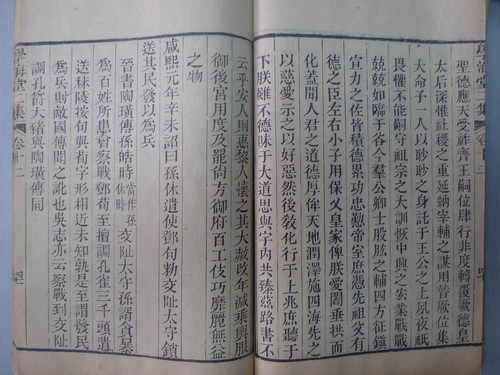 聖德應天受祚齊王嗣位肆行非度轉覆厥德皇
太后深惟社稷之重延納宰輔之謀用替厥位集
大命于一人以眇眇之身託于王公之上夙夜祗
畏懼不能嗣守祖宗之大訓恢中興之宏業戰戰
兢兢如臨于谷今羣公卿士股肱之輔四方征鎮
宣力之佐皆積德累功忠勤帝室庶憑先祖父有
德之臣左右小子用保乂皇家俾朕蒙闇垂拱而
化蓋聞君人之道德厚侔天地潤澤施四海先之
以慈愛示之以好惡然後敎化行于上兆庶聽于
下朕雖不德昧于大道思與宇內共臻茲路書不
云乎安人則惠黎人懷之其大赦改年減乘輿服
御後宮用度及罷尚方御府百工伎巧靡麗無益
之物
咸熙元年辛未詔曰孫休遣使鄧句勑交阯太守鎖
送其民發以爲兵
晉書陶璜傳孫皓時當作孫休時交阯太守孫諝貪暴
爲百姓所患會察戰鄧荀至擅調孔雀三千頭遣
送秣陵按句與荀字形相近未知孰是至謂發民
爲兵則敵國傳聞之訛也吳志亦云察戰到交阯
調孔爵大豬與陶璜傳同
學海堂二集 卷十二